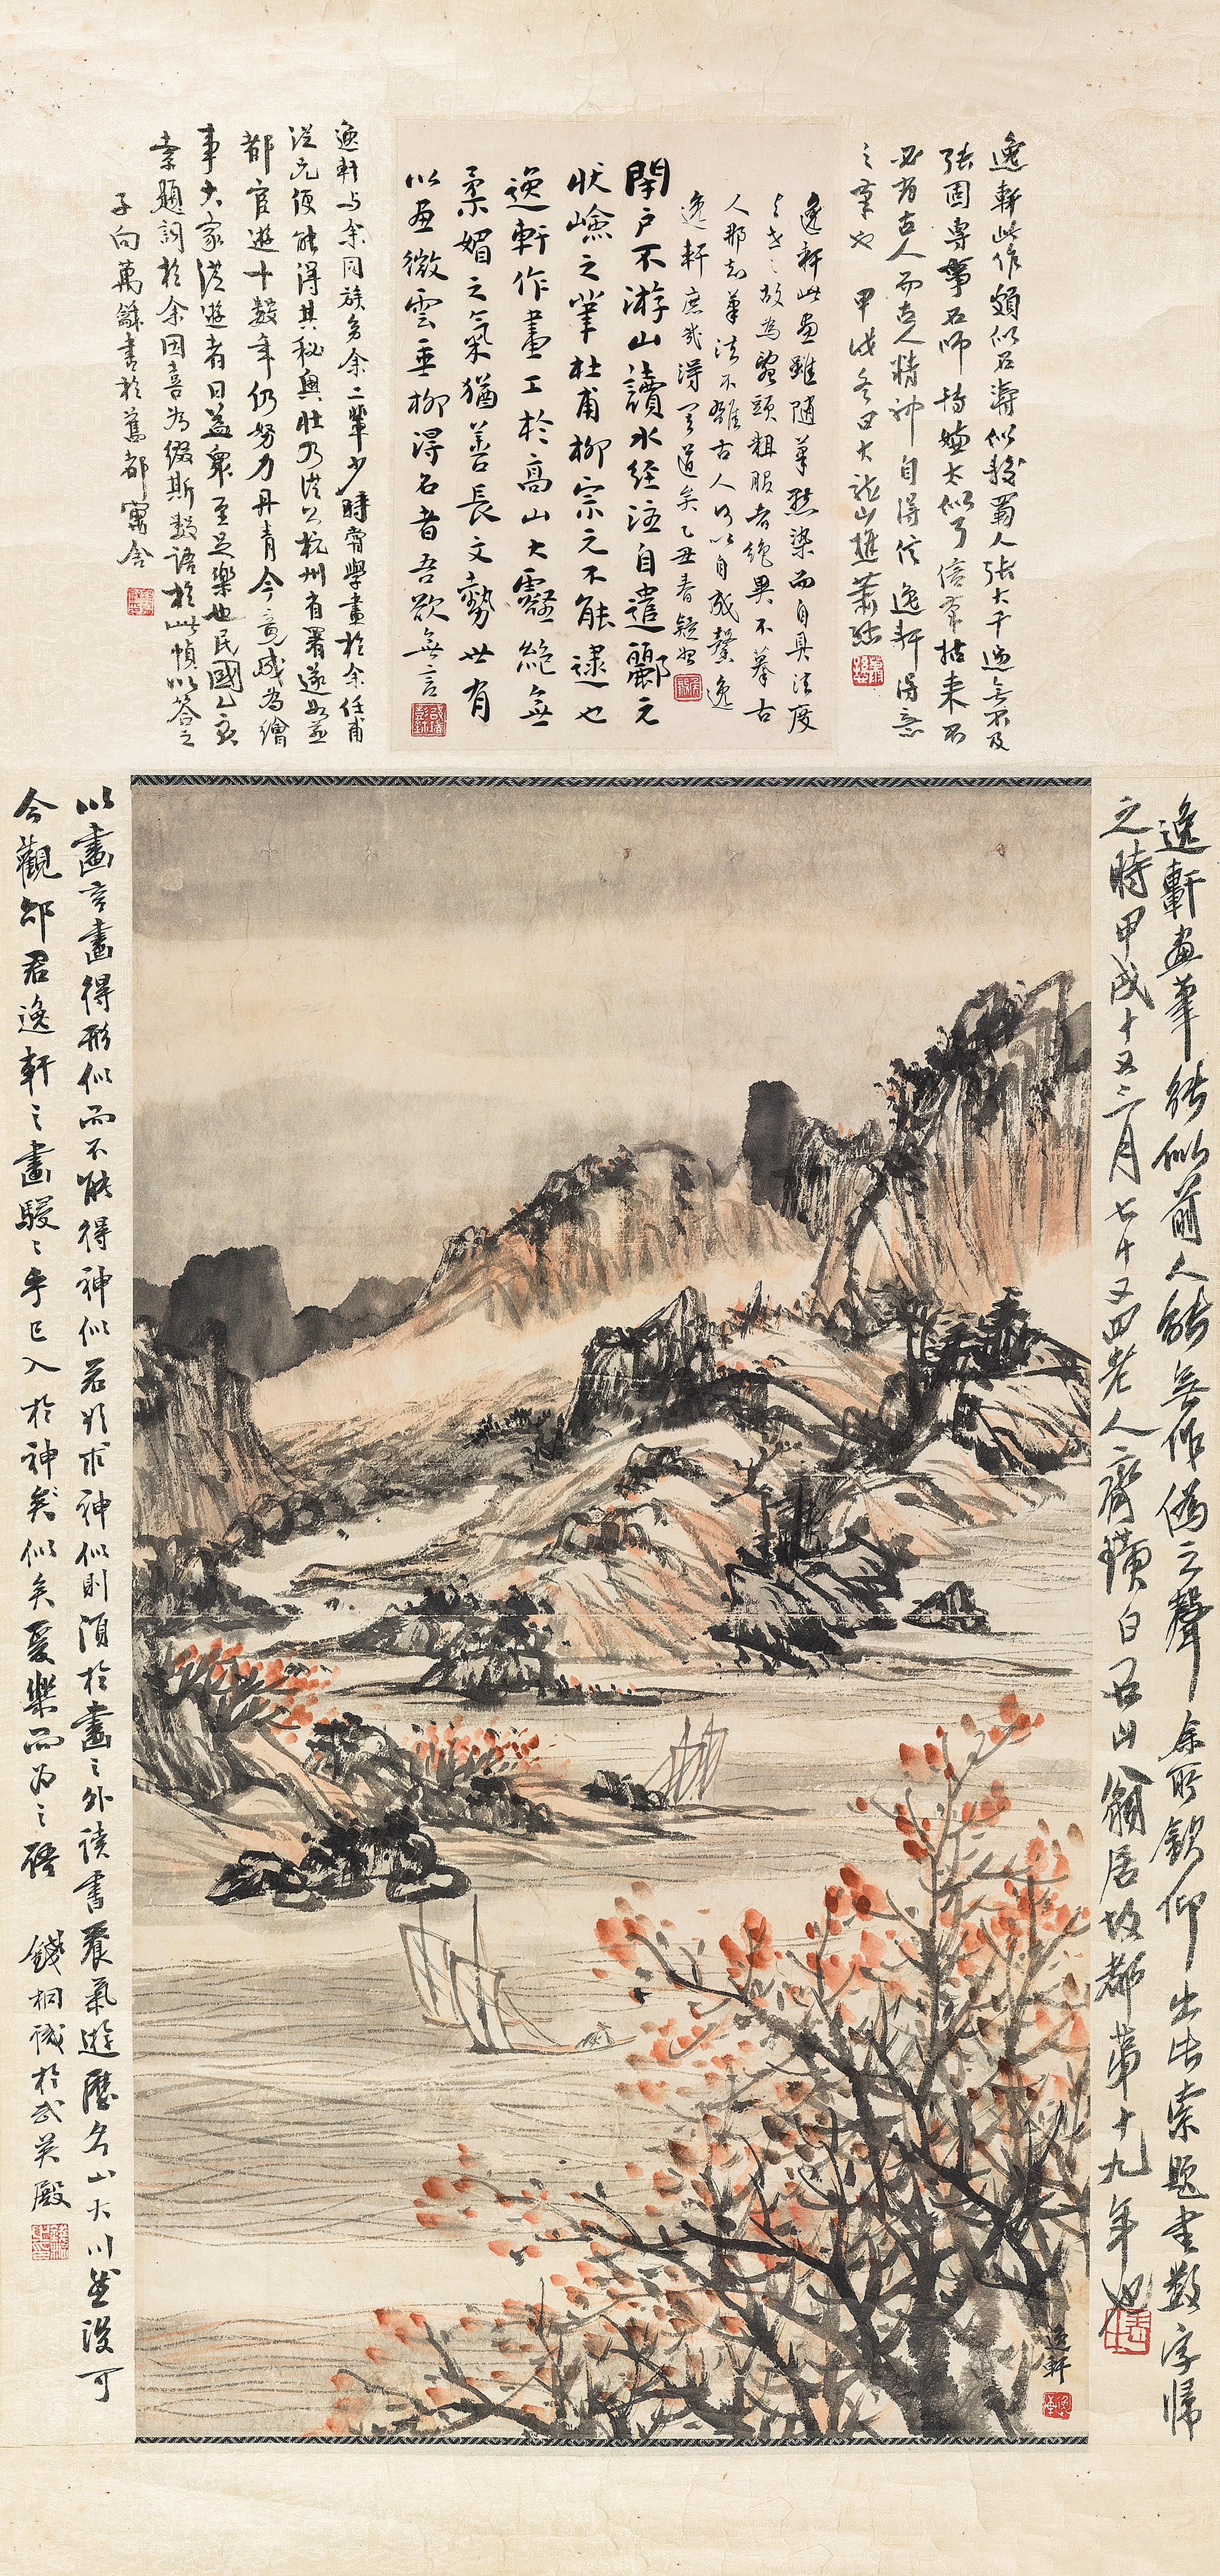 逸軒此作頗似石濤似我蜀人張大千遜無不及
張固專事石師特嫌太似了信筆拈来不
必有古人而古人精神自得信逸軒得意
之筆也 甲戌冬日大龍山樵蕭愻
逸軒此畫雖隨筆點染而自具法度
與世之故為亂頭粗服者絶異不摹古
人那知筆法不離古人何以自成馨逸
逸軒庶幾得其道矣乙丑春
閉户不游山讀水經注自遣酈元
狀嶮之筆杜甫柳宗元不能逮也
逸軒作畫工於高山大壑絶無
柔媚之氣猶善長文勢世有
以画微雲垂柳得名者吾欲無言
逸軒与余同族多余二輩少時嘗學畫於余任甫
従兄便能得其秘奥壮乃従公杭州有署遂
都宦遊十數年仍努力丹青今竟成為繪
事大家従遊者日益衆至足樂也民國乙亥
索題詞於余因喜為綴斯數語於此幀以答之
子向萬龢書於舊都寓舍
逸軒畫筆能似前人能無作偽之聲余所欽仰出此索題書數字歸
之時甲戌十又二月七十又四老人齊璜白石山翁居故都第十九年也
以畫言畫得形似而不能得神似若欲求神似則須於畫之外讀書養氣遊歷名山大川然後可
今觀邵君逸軒之畫駸駸乎已入於神矣似矣爰樂而為之語 錢桐識於武英殿
逸軒